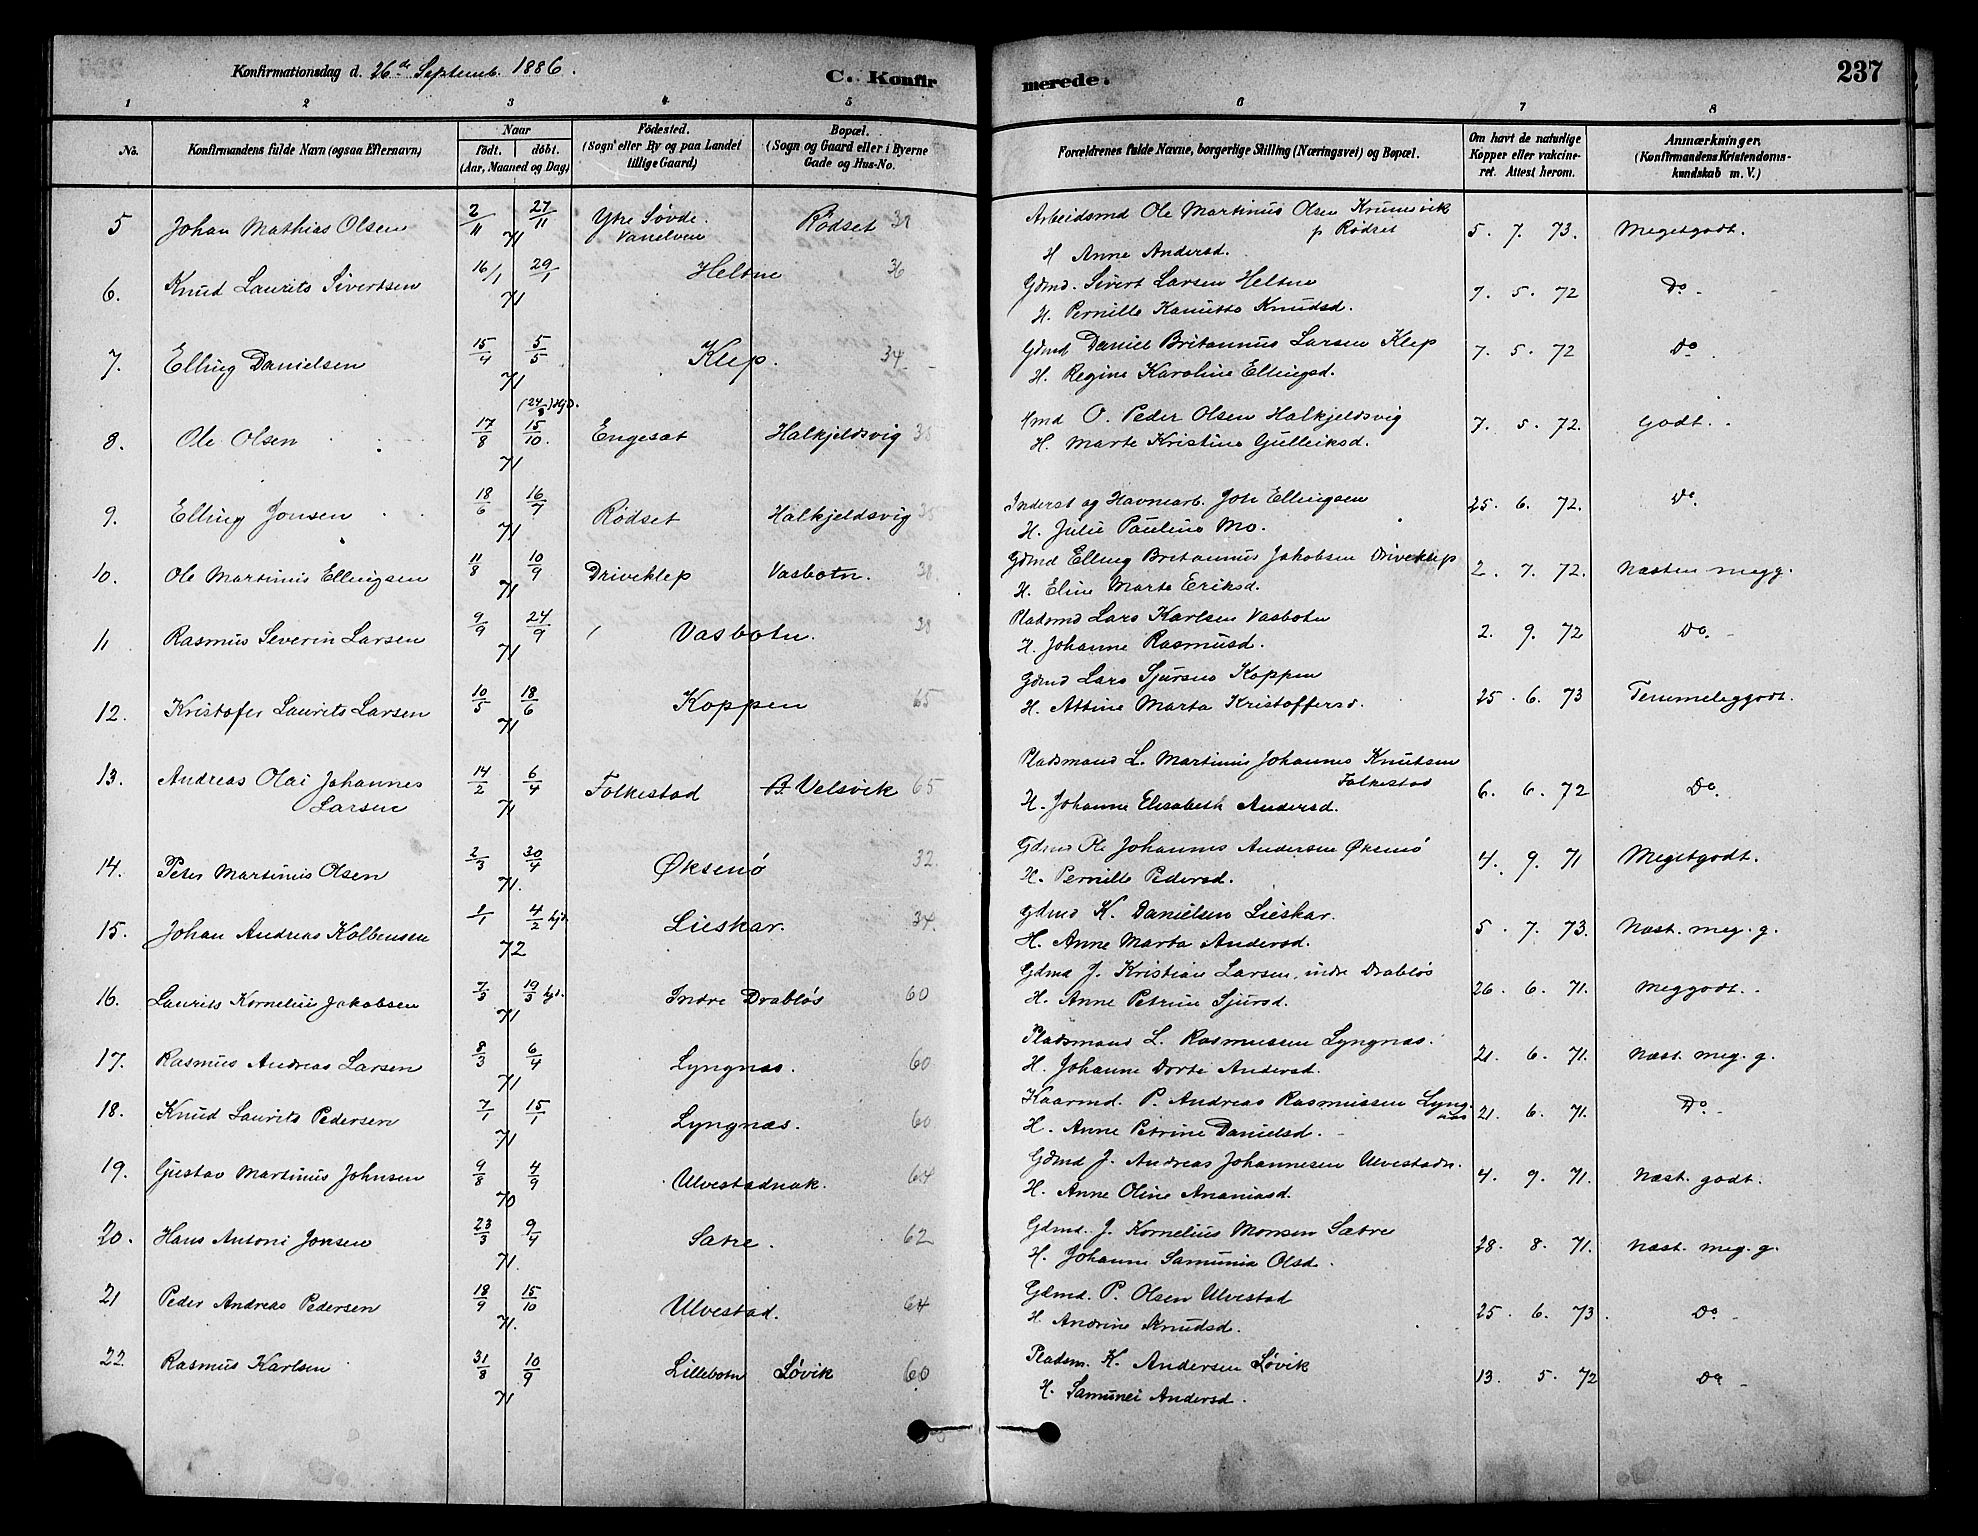 Konfirmationsdag d. 26de Septemb. 1886.
C. Konfirmerede. 237
1 2 3 4 5 6 7 8
No. Konfirmandens fulde Navn (ogsaa Efternavn) Naar født. døbt. (Aar, Maaned og Dag) Födested. (Sogn eller By og paa Landet tillige Gaard) Bopæl. (Sogn og Gaard eller i Byerne Gade og Hus-No. Forældrenes fulde Navne, borgerlige Stilling (Næringsvei) og Bopæl. Om havt de naturlige Kopper eller vakcineret. Attest herom. Anmærkninger. (Konfirmandens Kristendomskundskab m. V.)
5 Johan Mathias Olsen 2/11 27/11 71 Ytre Søvde. Vanelven Rødset Arbeidsmd Ole Martinus Olsen Krumsvik p Rødset 5. 7. 73. Megetgodt.
H Anne Andersd.
6. Knud Laurits Sivertsen 16/1 29/1 71 Heltne 36 Gdmd. Sivert Larsen Heltne 7. 5. 72 Do
H. Pernille Kanutta Knudsd.
7. Elling Danielsen 15/4 5/5 71 Klep. 34 Gdmd Daniel Britannus Larsen Klep 7. 5. 72 Do.
H. Regine Karoline Ellingsd.
8. Ole Olsen 17/8 (24/8) Hjd. 15/10. 71 Engeset Halkjeldsvig 38 O. Peder Olsen Halkjeldsvig 7. 5. 72. Godt.
H. Marte Kristine Gulleiksd.
9. Elling Jonsen 18/6 16/7 71 Rødset Halkjeldsvig 38 Inderst og Havnearb. Jon Ellingsen 25. 6. 72. Do
H. Julie Pauline Mo.
10. Ole Martinus Ellingsen 11/8 10/9 71 Driveklep Vasbotn. 38 Gdmd Elling Britannus Jakobsen Driveklep 2. 7. 72. Næsten megg.
H. Eline Marta Eriksd.
11 Rasmus Severin Larsen 9/9 24/9 71 Vasbotn. 38 Pladsmd Lars Karlsen Vasbotn 2. 9. 72 Do.
H. Johanne Rasmusd.
12. Kristofer Laurits Larsen 10/5 18/6 71 Koppen 65 Gdmd Lars Sjursen Koppen 25. 6. 73 Temmeliggodt.
H. Attine Marta Kristoffersd.
13. Andreas Olai Johannes Larsen 14/2 6/4 71 Folkestad B. Velsvik 65 Pladsmand L. Martinus Johannes Knutsen Folkestad 6. 6. 72 Do.
H. Johanne Elisabeth Andersd.
14. Peter Martinus Olsen 2/3 30/4 71. Øksenø 32 Gdmd Ole Johannes Andersen Øksenø 4. 9. 71 Megetgodt.
H. Pernille Pedersd.
15. Johan Andreas Kolbensen 1/1 4/2 hjd. 72 Lieskar. 34 Gdmd K. Danielsen Lieskar. 5. 7. 73. Næst. meg. g.
H. Anne Marta Andersd.
16. Laurits Kornelius Jakobsen 7/3 19/3 hjd. 71 Indre Drabløs 60 Gdmd J. Kristian Larsen, indre Drabløs 26. 6. 71. Meggodt.
H. Anne Petrine Sjursd.
17. Rasmus Andreas Larsen 8/3 6/4 71 Lyngnæs. 60 Pladsmand L. Rasmussen Lyngnæs. 21. 6. 71. Næst. meg. g.
H. Johanne Dorte Andersd.
18. Knud Laurits Pedersen 7/1 15/1 71 Lyngnæs. 60 Kaarmd. P. Andreas Rasmussen Lyngnæs 21. 6. 71. Do
H. Anne Petrine Danielsd.
19. Gustav Martinus Johnsen 9/8 4/9 70 Ulvestadnak. 64 Gdmd J. Andreas Johannesen Ulvestadn. 4. 9. 71. Næst. godt.
H. Anne Oline Ananiasd.
20. Hans Antoni Jonsen 23/3 9/4 71. Sætre. 62 Gdmd. J. Kornelius Monsen Sætre 28. 8. 71. Næst. meg. g.
H. Johanne Samunia Olsd.
21 Peder Andreas Pedersen 18/9 15/10 71. Ulvestad. 64 Gdmd. P. Olsen Ulvestad 25. 6. 73. Do
H Andrine Knudsd.
22 Rasmus Karlsen 31/8 10/9 71 Lillebotn Løvik 60 Pladsm. K. Andersen Løvik 13. 5. 72 Do
H. Samunei Andersd.